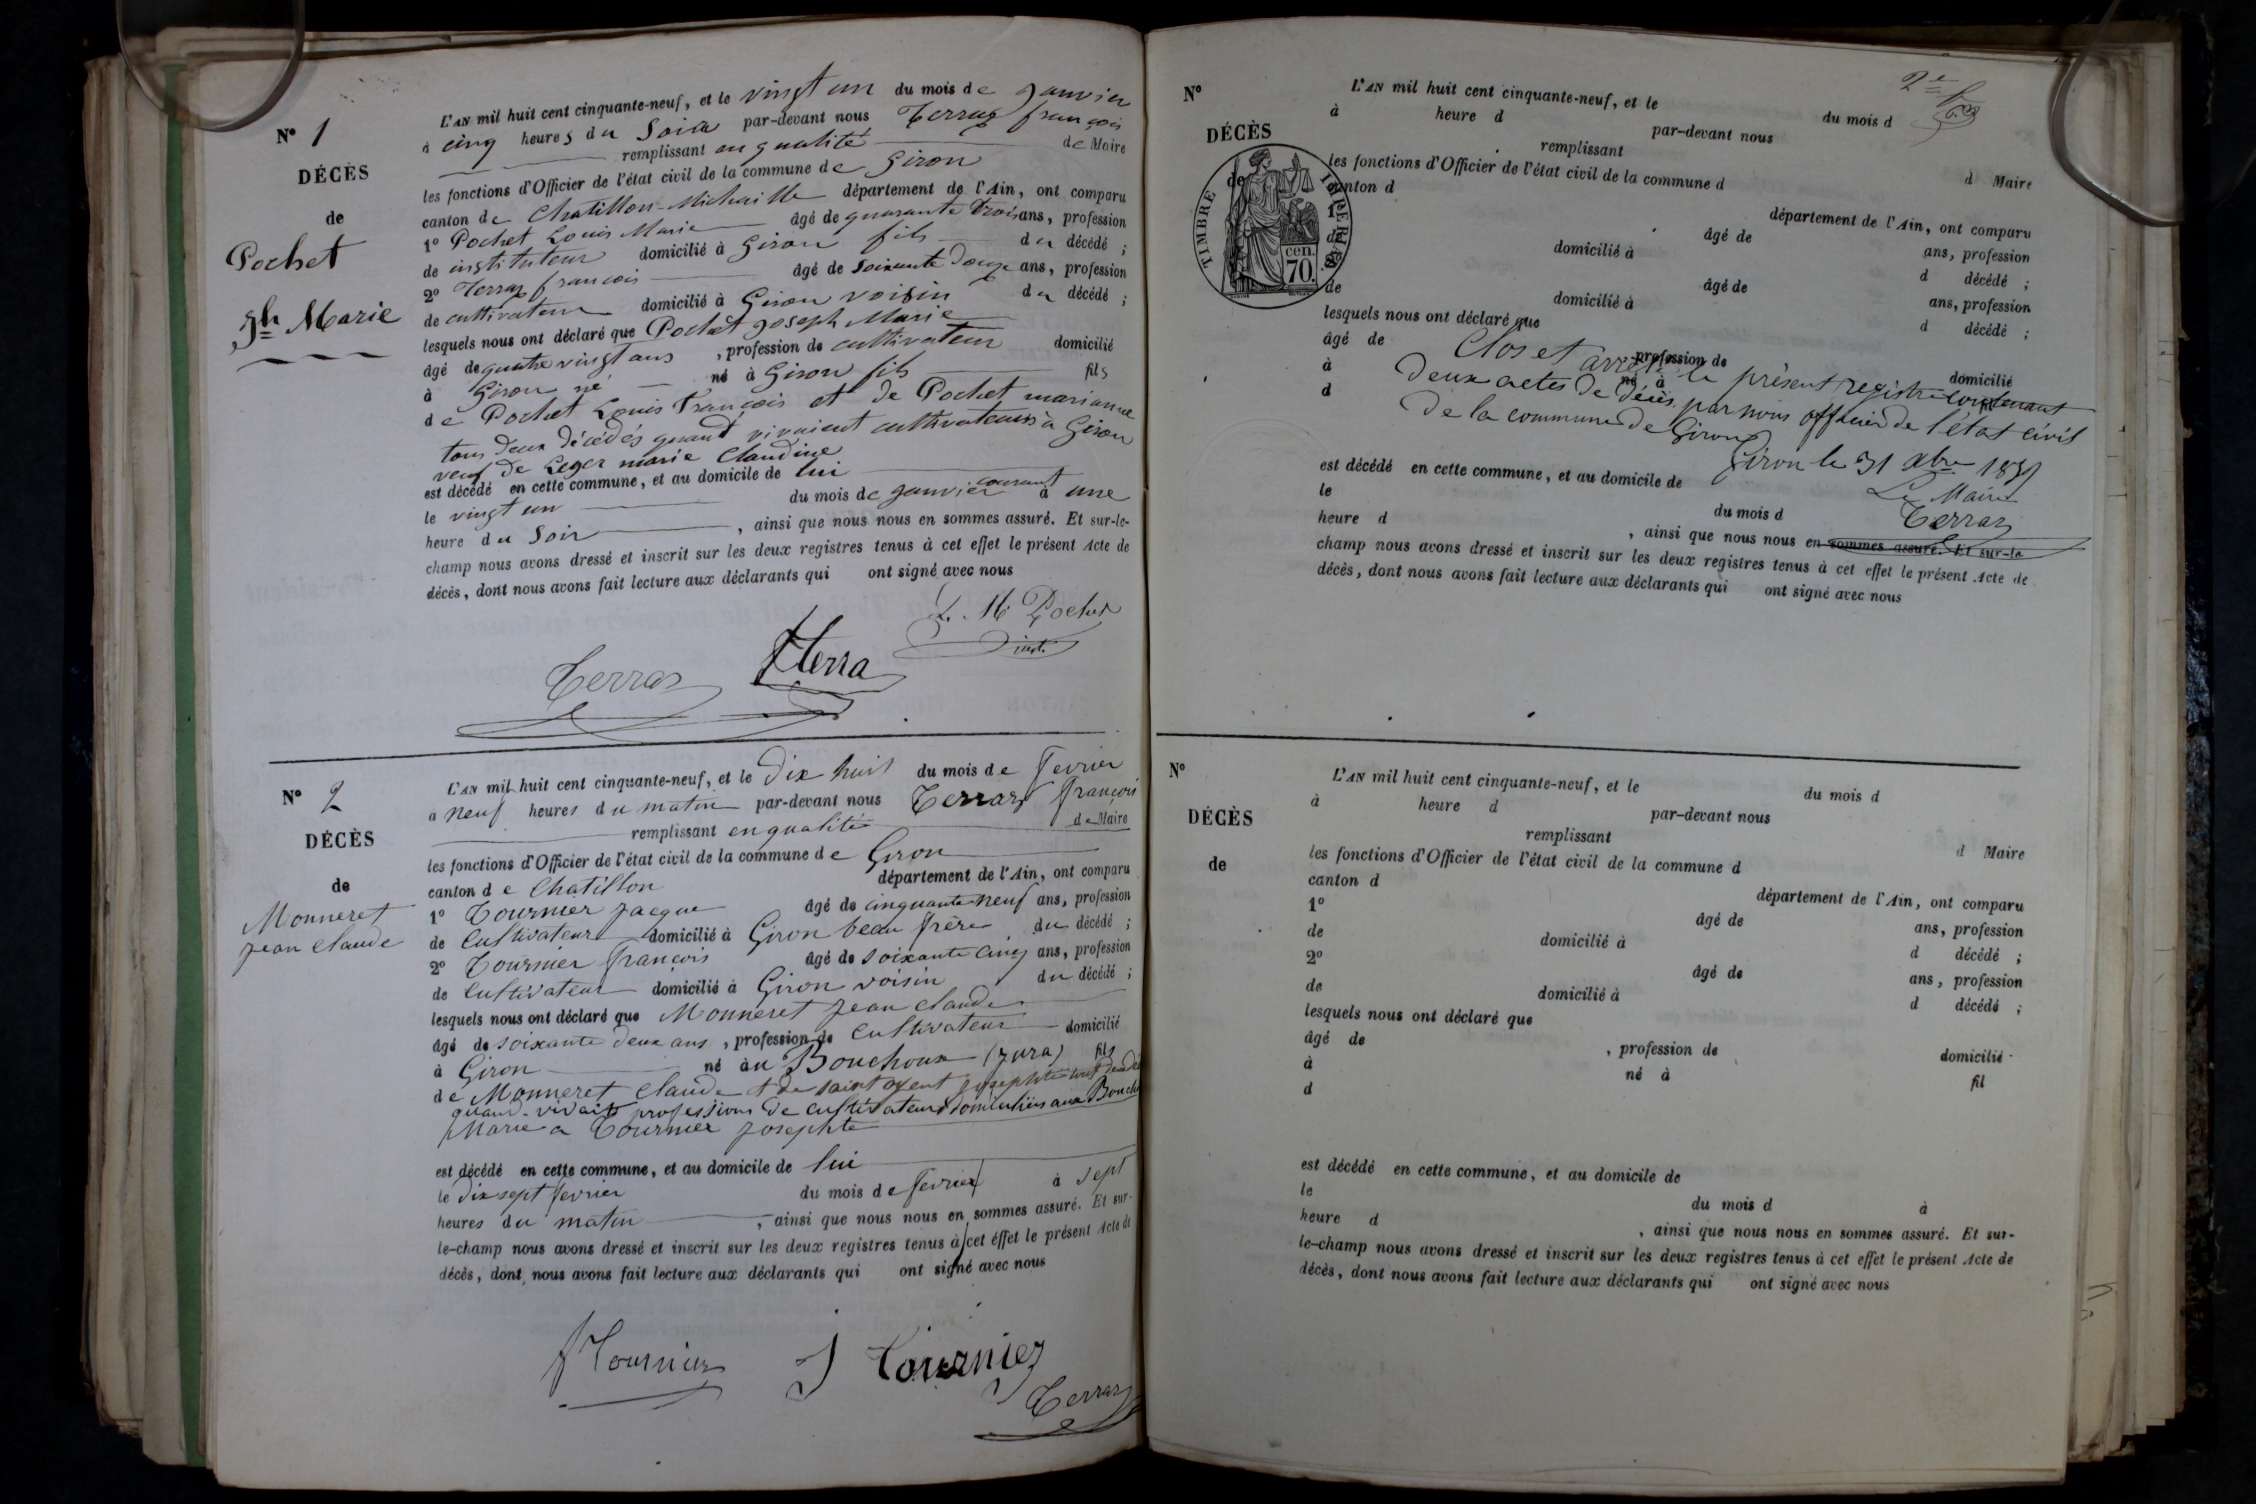 N° 1
DÉCÈS
de
Pochet
Jh Marie
L'AN mil huit cent cinquante-neuf, et le vingt un du mois de Janvier
à cinq heures du Soir par-devant nous Terraz françois
remplissant en qualité de Maire
les fonctions d'Officier de l'état civil de la commune de Giron
canton de Chatillon-Michaille département de l'Ain, ont comparu
1° Pochet Louis Marie âgé de quarante trois ans, profession
de instituteur domicilié à Giron fils du décédé ;
2° Terraz françois âgé de soixante douze ans, profession
de cultivateur domicilié à Giron voisin du décédé ;
lesquels nous ont déclaré que Pochet Joseph Marie
âgé de quatre vingt ans , profession de cultivateur domicilié
à Giron né né à Giron fils fils
de Pochet Louis François et de Pochet marianne
tous deux décédés quand vivaient cultivateurs à Giron
veuf de Leger marie Claudine
est décédé en cette commune, et au domicile de lui
le vingt un du mois de Janvier courant à une
heure du Soir , ainsi que nous nous en sommes assuré. Et sur-le-
champ nous avons dressé et inscrit sur les deux registres tenus à cet effet le présent Acte de
décès, dont nous avons fait lecture aux déclarants qui ont signé avec nous
L. M Pochet
inst.
Terraz fTerra
N° 2
DÉCÈS
de
Monneret
Jean Claude
L'AN mil huit cent cinquante-neuf, et le dix huit du mois de fevrier
à neuf heures du matin par-devant nous Terraz françois
remplissant en qualité de Maire
les fonctions d'Officier de l'état civil de la commune de Giron
canton de Chatillon département de l'Ain, ont comparu
1° Tournier Jacque âgé de cinquante neuf ans, profession
de Cultivateur domicilié à Giron beau frère du décédé ;
2° Tournier françois âgé de soixante cinq ans, profession
de Cultivateur domicilié à Giron voisin du décédé ;
lesquels nous ont déclaré que Monneret Jean Claude
âgé de soixante deux ans , profession de Cultivateur domicilié
à Giron né au Bouchoux (Jura) fils
de Monneret Claude et de saint oyent Josephte
quand vivait professions de cultivateurs domiciliés aux Bouch
Marie a Tournier Josephte
est décédé en cette commune, et au domicile de lui
le dix sept fevrier du mois de fevrier à sept
heures du matin , ainsi que nous nous en sommes assuré. Et sur-
le-champ nous avons dressé et inscrit sur les deux registres tenus à cet effet le présent Acte de
décès, dont nous avons fait lecture aux déclarants qui ont signé avec nous
fTournier J Tournier
Terraz
2e
N°
DÉCÈS
de
TIMBRE IMPERIAL
70 cen.
L'AN mil huit cent cinquante-neuf, et le du mois d
à heure d par-devant nous
remplissant d Maire
les fonctions d'Officier de l'état civil de la commune d
canton d département de l'Ain, ont comparu
1° âgé de ans, profession
de domicilié à d décédé ;
âgé de ans, profession
de domicilié à d décédé ;
lesquels nous ont déclaré que
âgé de profession de domicilié
à né à fil
d
Clos et arrêté le présent registre contenant
deux actes de décès par nous officier de l'état civil
de la commune de Giron
Giron le 31 Xbre 1859
Le Maire
Terraz
est décédé en cette commune, et au domicile de
le du mois d
heure d , ainsi que nous nous en sommes assuré. Et sur-le
champ nous avons dressé et inscrit sur les deux registres tenus à cet effet le présent Acte de
décès, dont nous avons fait lecture aux déclarants qui ont signé avec nous
N°
DÉCÈS
de
L'AN mil huit cent cinquante-neuf, et le du mois d
à heure d par-devant nous
remplissant d Maire
les fonctions d'Officier de l'état civil de la commune d
canton d département de l'Ain, ont comparu
1° âgé de ans, profession
de domicilié à d décédé ;
2° âgé de ans, profession
de domicilié à d décédé ;
lesquels nous ont déclaré que
âgé de , profession de domicilié
à né à fil
d
est décédé en cette commune, et au domicile de
le du mois d à
heure d , ainsi que nous nous en sommes assuré. Et sur-
le-champ nous avons dressé et inscrit sur les deux registres tenus à cet effet le présent Acte de
décès, dont nous avons fait lecture aux déclarants qui ont signé avec nous